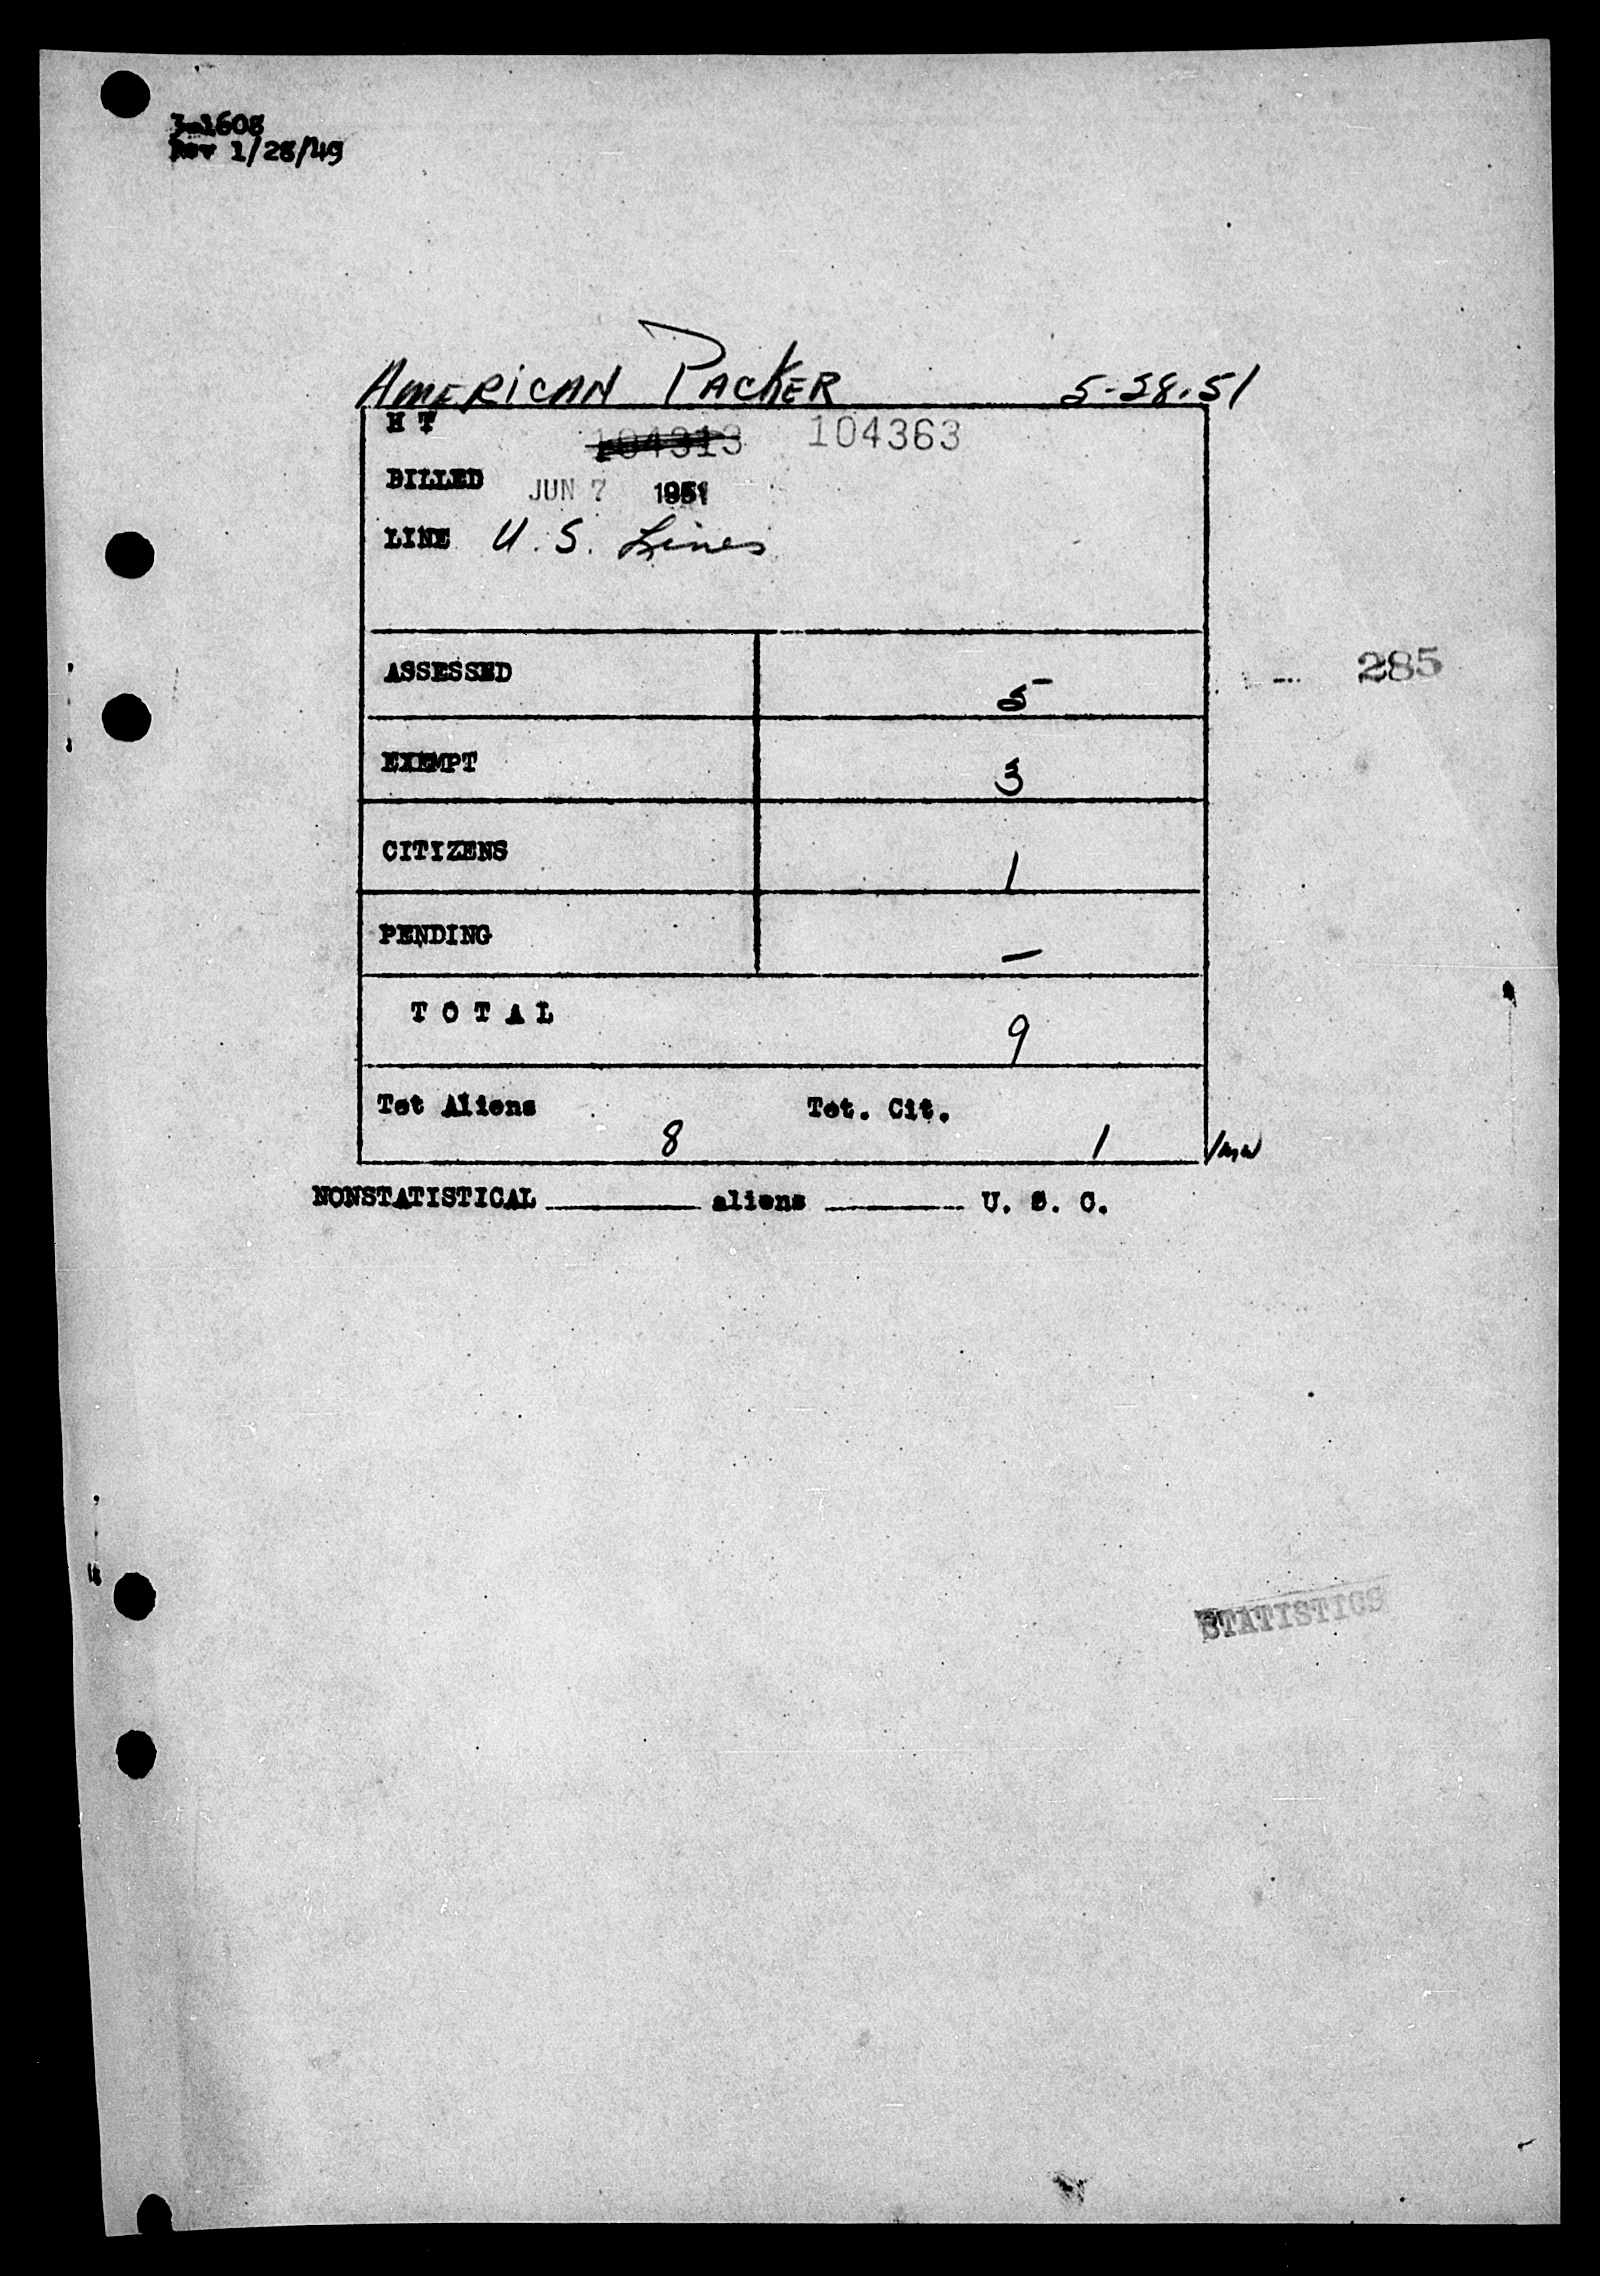 3-1608
Rev 1/28/49
AMERICAN PACKER 5-28-51
H T 104313 104363
BILLED JUN 7 1951
LINE U. S. Lines
ASSESSED 5
285
EXEMPT 3
CITIZENS 1
PENDING —
T O T A L 9
Tot Aliens 8 Tot. Cit. 1
NONSTATISTICAL ______ aliens ______ U. S. C.
STATISTICS